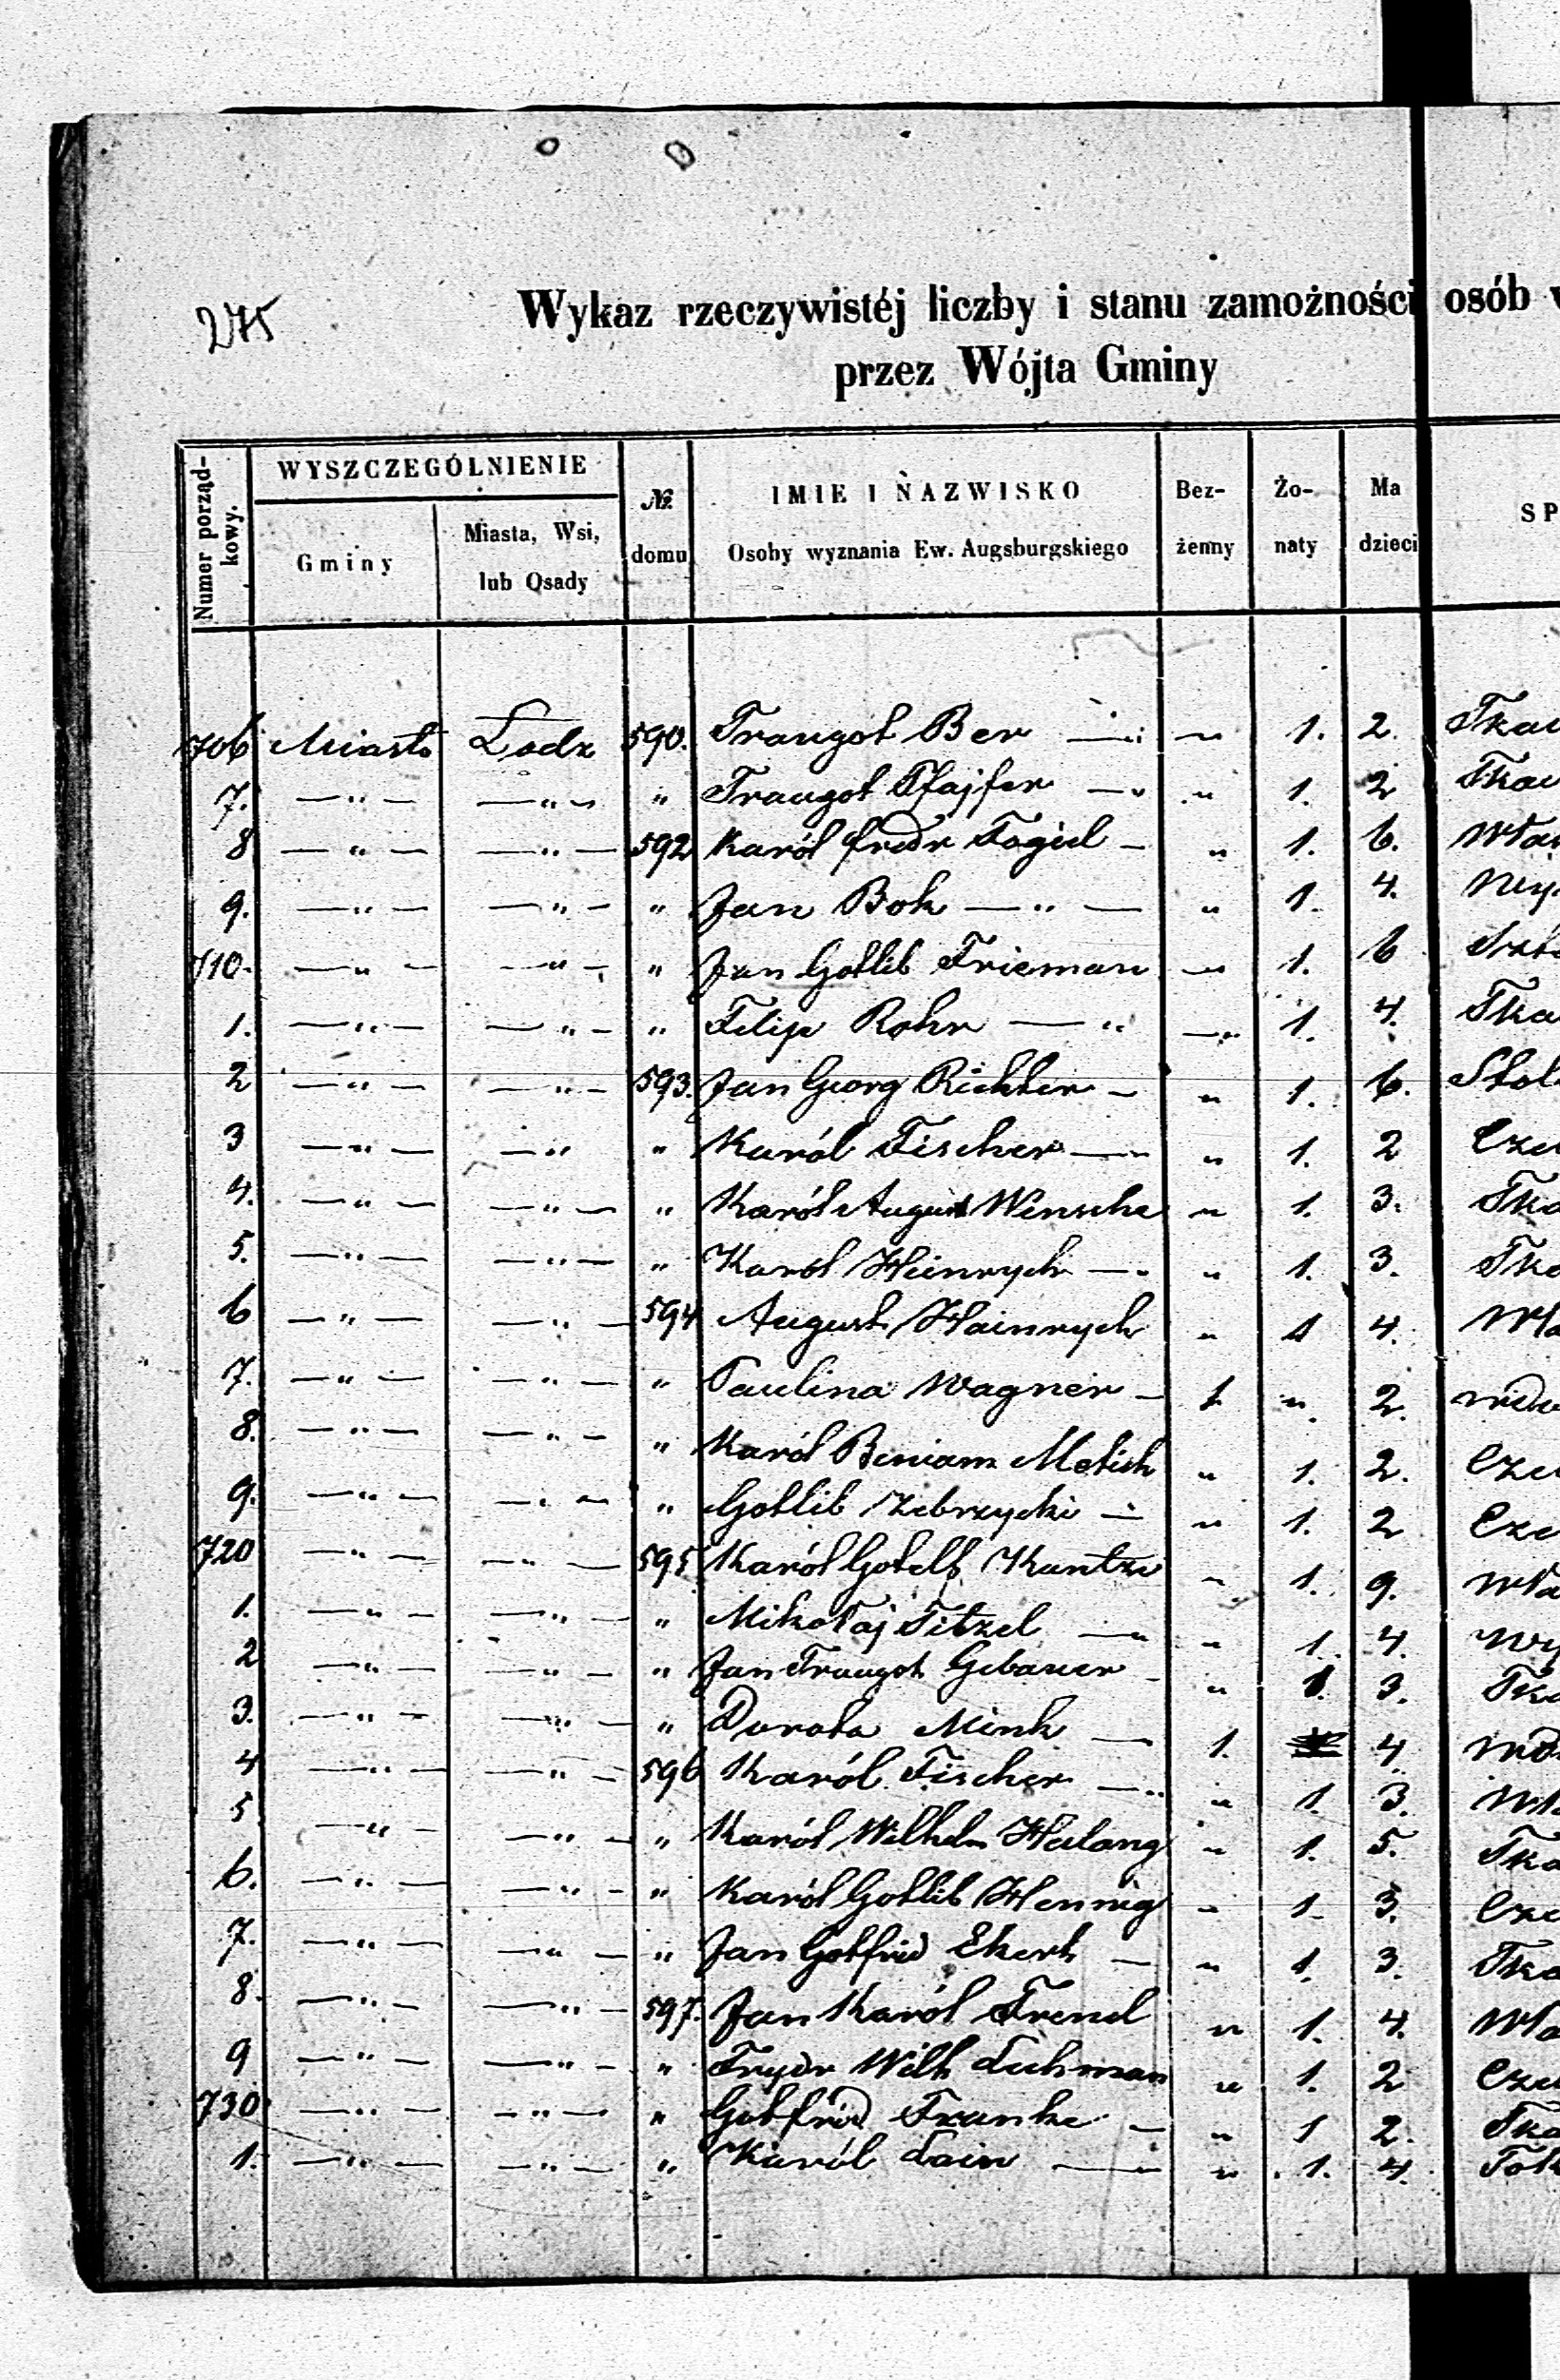 275
Wykaz rzeczywistéj liczby i stanu zamożności osób w
przez Wójta Gminy
Numer porząd-kowy. WYSZCZEGÓLNIENIE Gminy Miasta, Wsi, lub Osady № domu IMIE I NAZWISKO Osoby wyznania Ew. Augsburgskiego Bez-żenny Żo-naty Ma dzieci SP
706 Miasto Łodz 590. Traugot Ber — " 1. 2. Tkac
7. —"— —"— " Traugot Pfajfer — " 1. 2 Tkac
8 —"— —"— 592 Karól Fredr Fogiel — " 1. 6. Włas
9. —"— —"— " Jan Bok —"— " 1. 4. Wy
710. —"— —"— " Jan Gotlib Frieman " 1. 6
1. —"— —"— " Filip Rohr —" " 1. 4. Tka
2 —"— —"— 593. Jan Georg Richter — " 1. 6. Stol
3 —"— —"— " Karól Fischer —" " 1. 2 Cze
4. —"— —"— " Karól August Winsche " 1. 3. Tka
5. —"— —"— " Karól Heinrych —" " 1. 3. Tka
6 —"— —"— 594 August Hainrych " 1 4. Wła
7. —"— —"— " Paulina Wagner — 1 " 2. wdo
8. —"— —"— " Karól Beniam Metich " 1. 2. Cze
9. —"— —"— " Gotlib Zebrzycki — " 1. 2 Cze
720 —"— —"— 595 Karól Gotelb Kuntze " 1. 9. Wła
1. —"— —"— " Mikołaj Titzel —" " 1. 4. Wy
2 —"— —"— " Jan Traugot Gebauer — " 1. 3. Tka
3. —"— —"— " Dorota Mink — 1. 4. wdo
4 —"— —"— 596 Karól Fischer —" " 1. 3. Wła
5 —"— —"— " Karól Wilhelm Halang " 1. 5. Tka
6. —"— —"— " Karól Gotlib Hennig " 1. 3. Cze
7. —"— —"— " Jan Gotfrid Ekert — " 1. 3. Tka
8. —"— —"— 597. Jan Karól Frend " 1. 4. Wła
9 —"— —"— " Frydr Wilh Luhman " 1. 2 Cze
730 —"— —"— " Gotfrid Franke — " 1 2. Tka
1. —"— —"— " Karól Lain — " 1. 4.